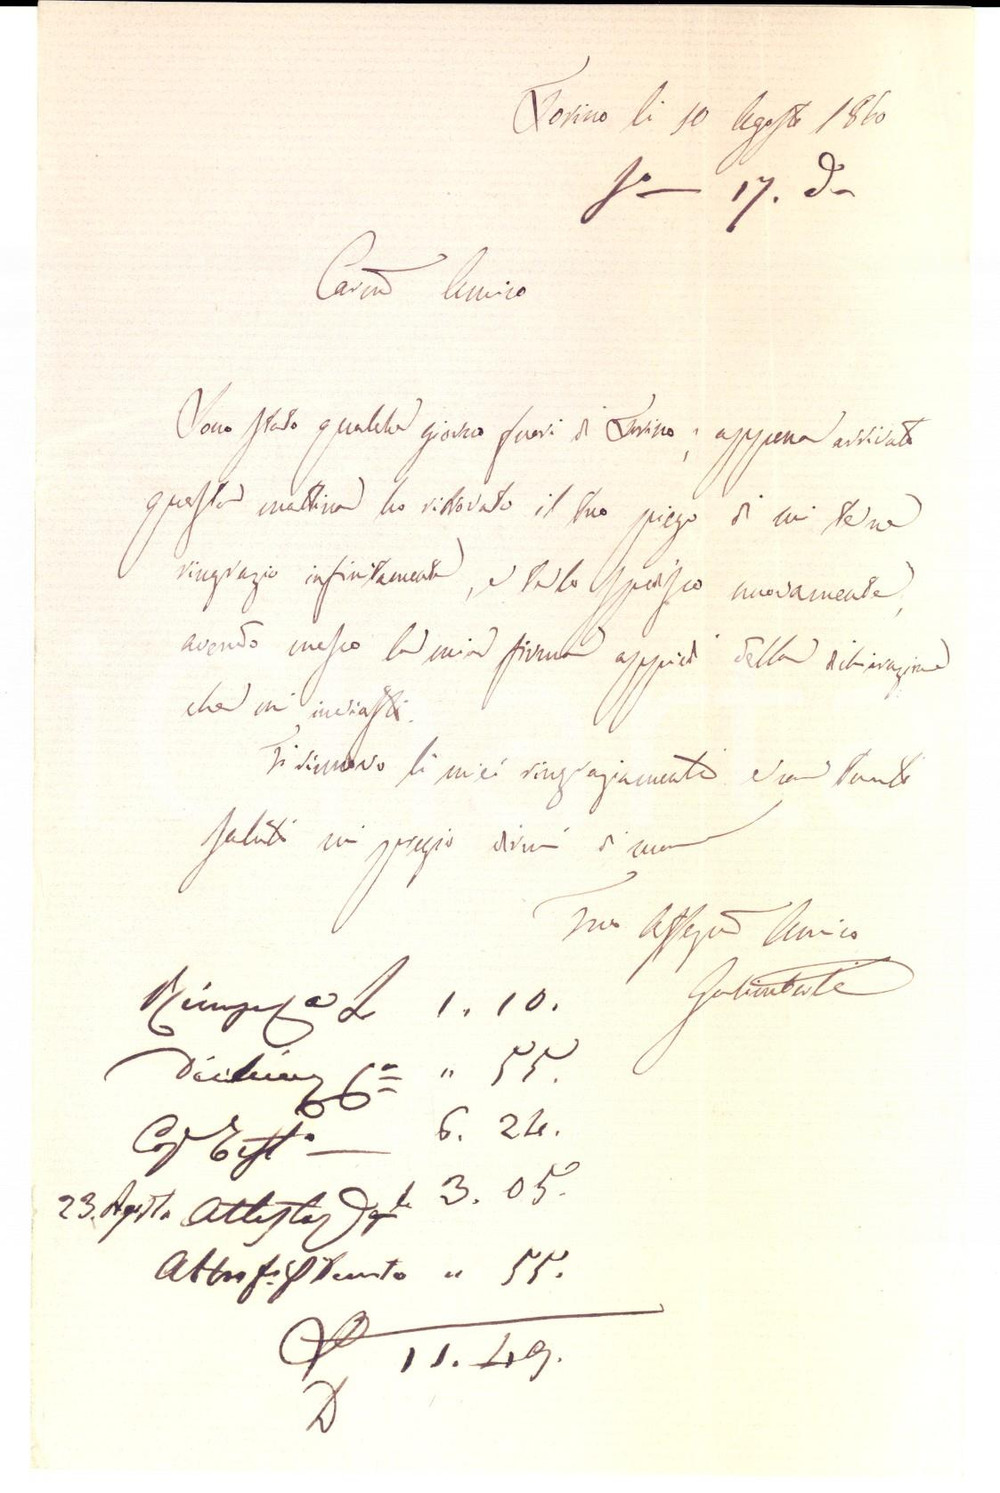 Torino li 10 Agosto 1860
17. Da
Carmo Amico
Sono stato qualche giorno fuori di Torino; appena arrivato
questa mattina ho ritrovato il tuo piego di mi te ne
ringrazio infinitamente, e te lo spedisco nuovamente,
avendo messo la mia firma appiedi della dichiarazione
che mi inviasti.
Ti rinnovo li miei ringraziamenti e con tanti
saluti mi pregio dirmi di cuore
Tuo Affezmo Amico
Galimberti
L 1. 10.
" 55.
6. 24.
23. Agosto 3. 05.
" 55.
11. 49.
D